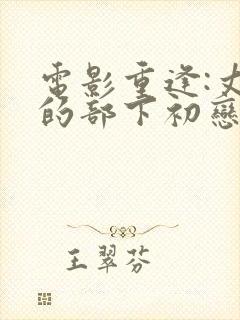 電影重逢:丈
的部下初戀
王翠芬